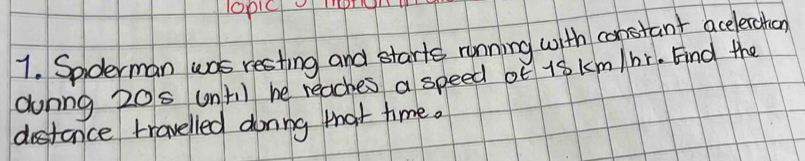 Topic 3 motion in
1. Spiderman was resting and starts running with constant aceleration
during 20s until he reaches a speed of 18 km/hr. Find the
distance travelled during that time.